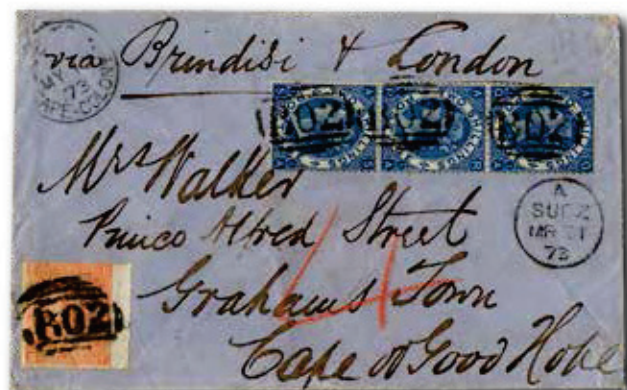 via Brindisi & London
MY
73
CAPE-COLONY
B02 B02 B02
Mrs Walker
Prince Alfred Street
Grahams Town
Cape of Good Hope
4
A
SUEZ
MR 31
73
B02